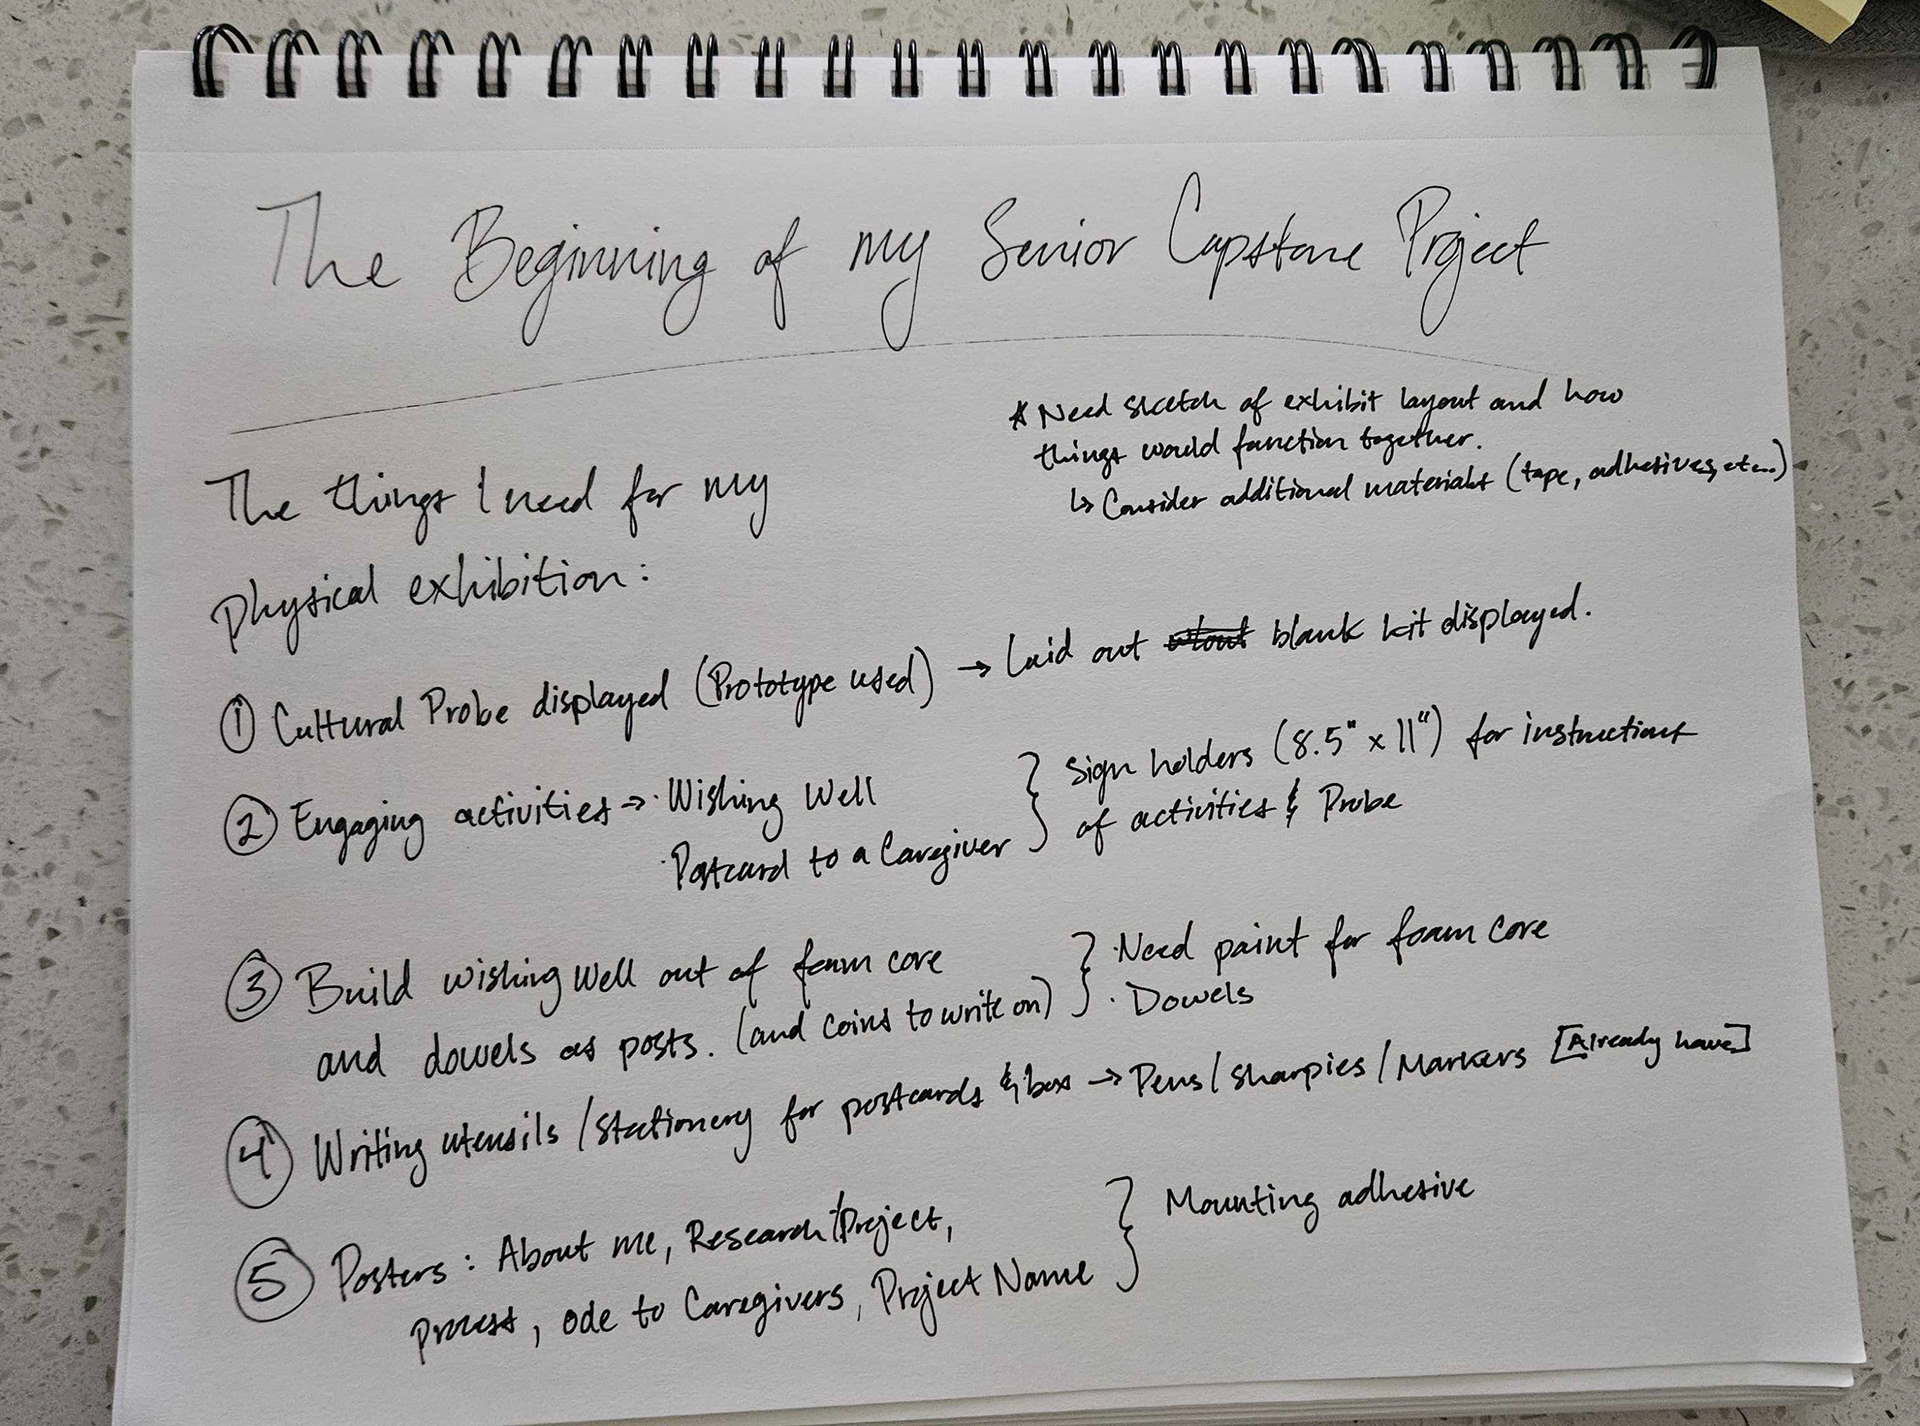 The Beginning of my Senior Capstone Project
* Need sketch of exhibit layout and how
things would function together.
↳ Consider additional materials (tape, adhesives, etc...)
The things I need for my
physical exhibition:
① Cultural Probe displayed (Prototype used) → Laid out blank kit displayed.
② Engaging activities → · Wishing Well
· Postcard to a Caregiver
} Sign holders (8.5" x 11") for instructions
of activities & Probe
③ Build wishing well out of foam core
and dowels as posts. (and coins to write on)
} · Need paint for foam core
· Dowels
④ Writing utensils / stationery for postcards & box → Pens / Sharpies / Markers [Already have]
⑤ Posters : About me, Research/Project,
process, ode to Caregivers, Project Name
} Mounting adhesive